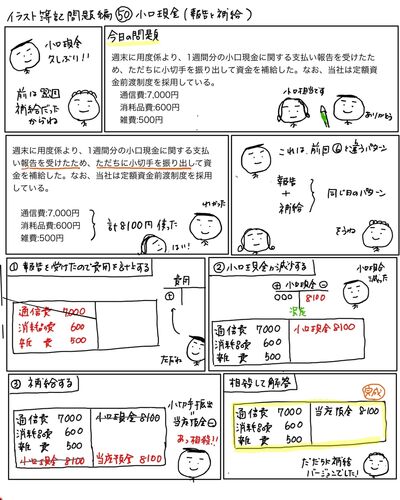 イラスト簿記問題編 50 小口現金(報告と補給)
小口現金
久しぶり!!
前は翌週
補給だった
からね
今日の問題
週末に用度係より、1週間分の小口現金に関する支払い報告を受けたた
め、ただちに小切手を振り出して資金を補給した。なお、当社は定額資
金前渡制度を採用している。
通信費:7,000円
消耗品費:600円
雑費:500円
小口担当です
ありがとう
週末に用度係より、1週間分の小口現金に関する支払
い報告を受けたため、ただちに小切手を振り出して資
金を補給した。なお、当社は定額資金前渡制度を採用
している。
通信費:7,000円
消耗品費:600円
雑費:500円
計8100円使った
わかった
はい!
これは、前回⑥と違うパターン
報告
+
補給
同じ日のパターン
そうね
① 報告を受けたので費用を計上する
通信費 7000
消耗品費 600
雑 費 500
費用
+
② 小口現金が減少する
+ 小口現金 -
000 8100
減少
小口現金
減った
通信費 7000
消耗品費 600
雑 費 500
小口現金 8100
③ 補給する
通信費 7000
消耗品費 600
雑 費 500
小口現金 8100
小口現金 8100
当座預金 8100
小切手振出
=
当座預金 -
あっ相殺!!
相殺して解答
完成
通信費 7000
消耗品費 600
雑 費 500
当座預金 8100
ただちに補給
バージョンでした!